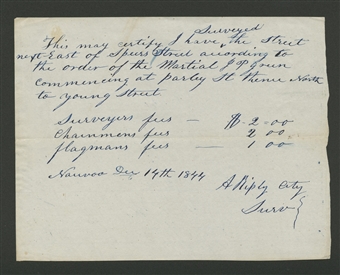 Surveyed
This may certify I have the Street
next East of Spurs Street according to
the order of the Martial J P Green
commencing at parley St thence North
to young Street
Surveyers fees — $ 2=00
Chainmens fees 2 00
flagmans fees — 1 00
Nauvoo Dec 14th 1844
A Riply City
Surv